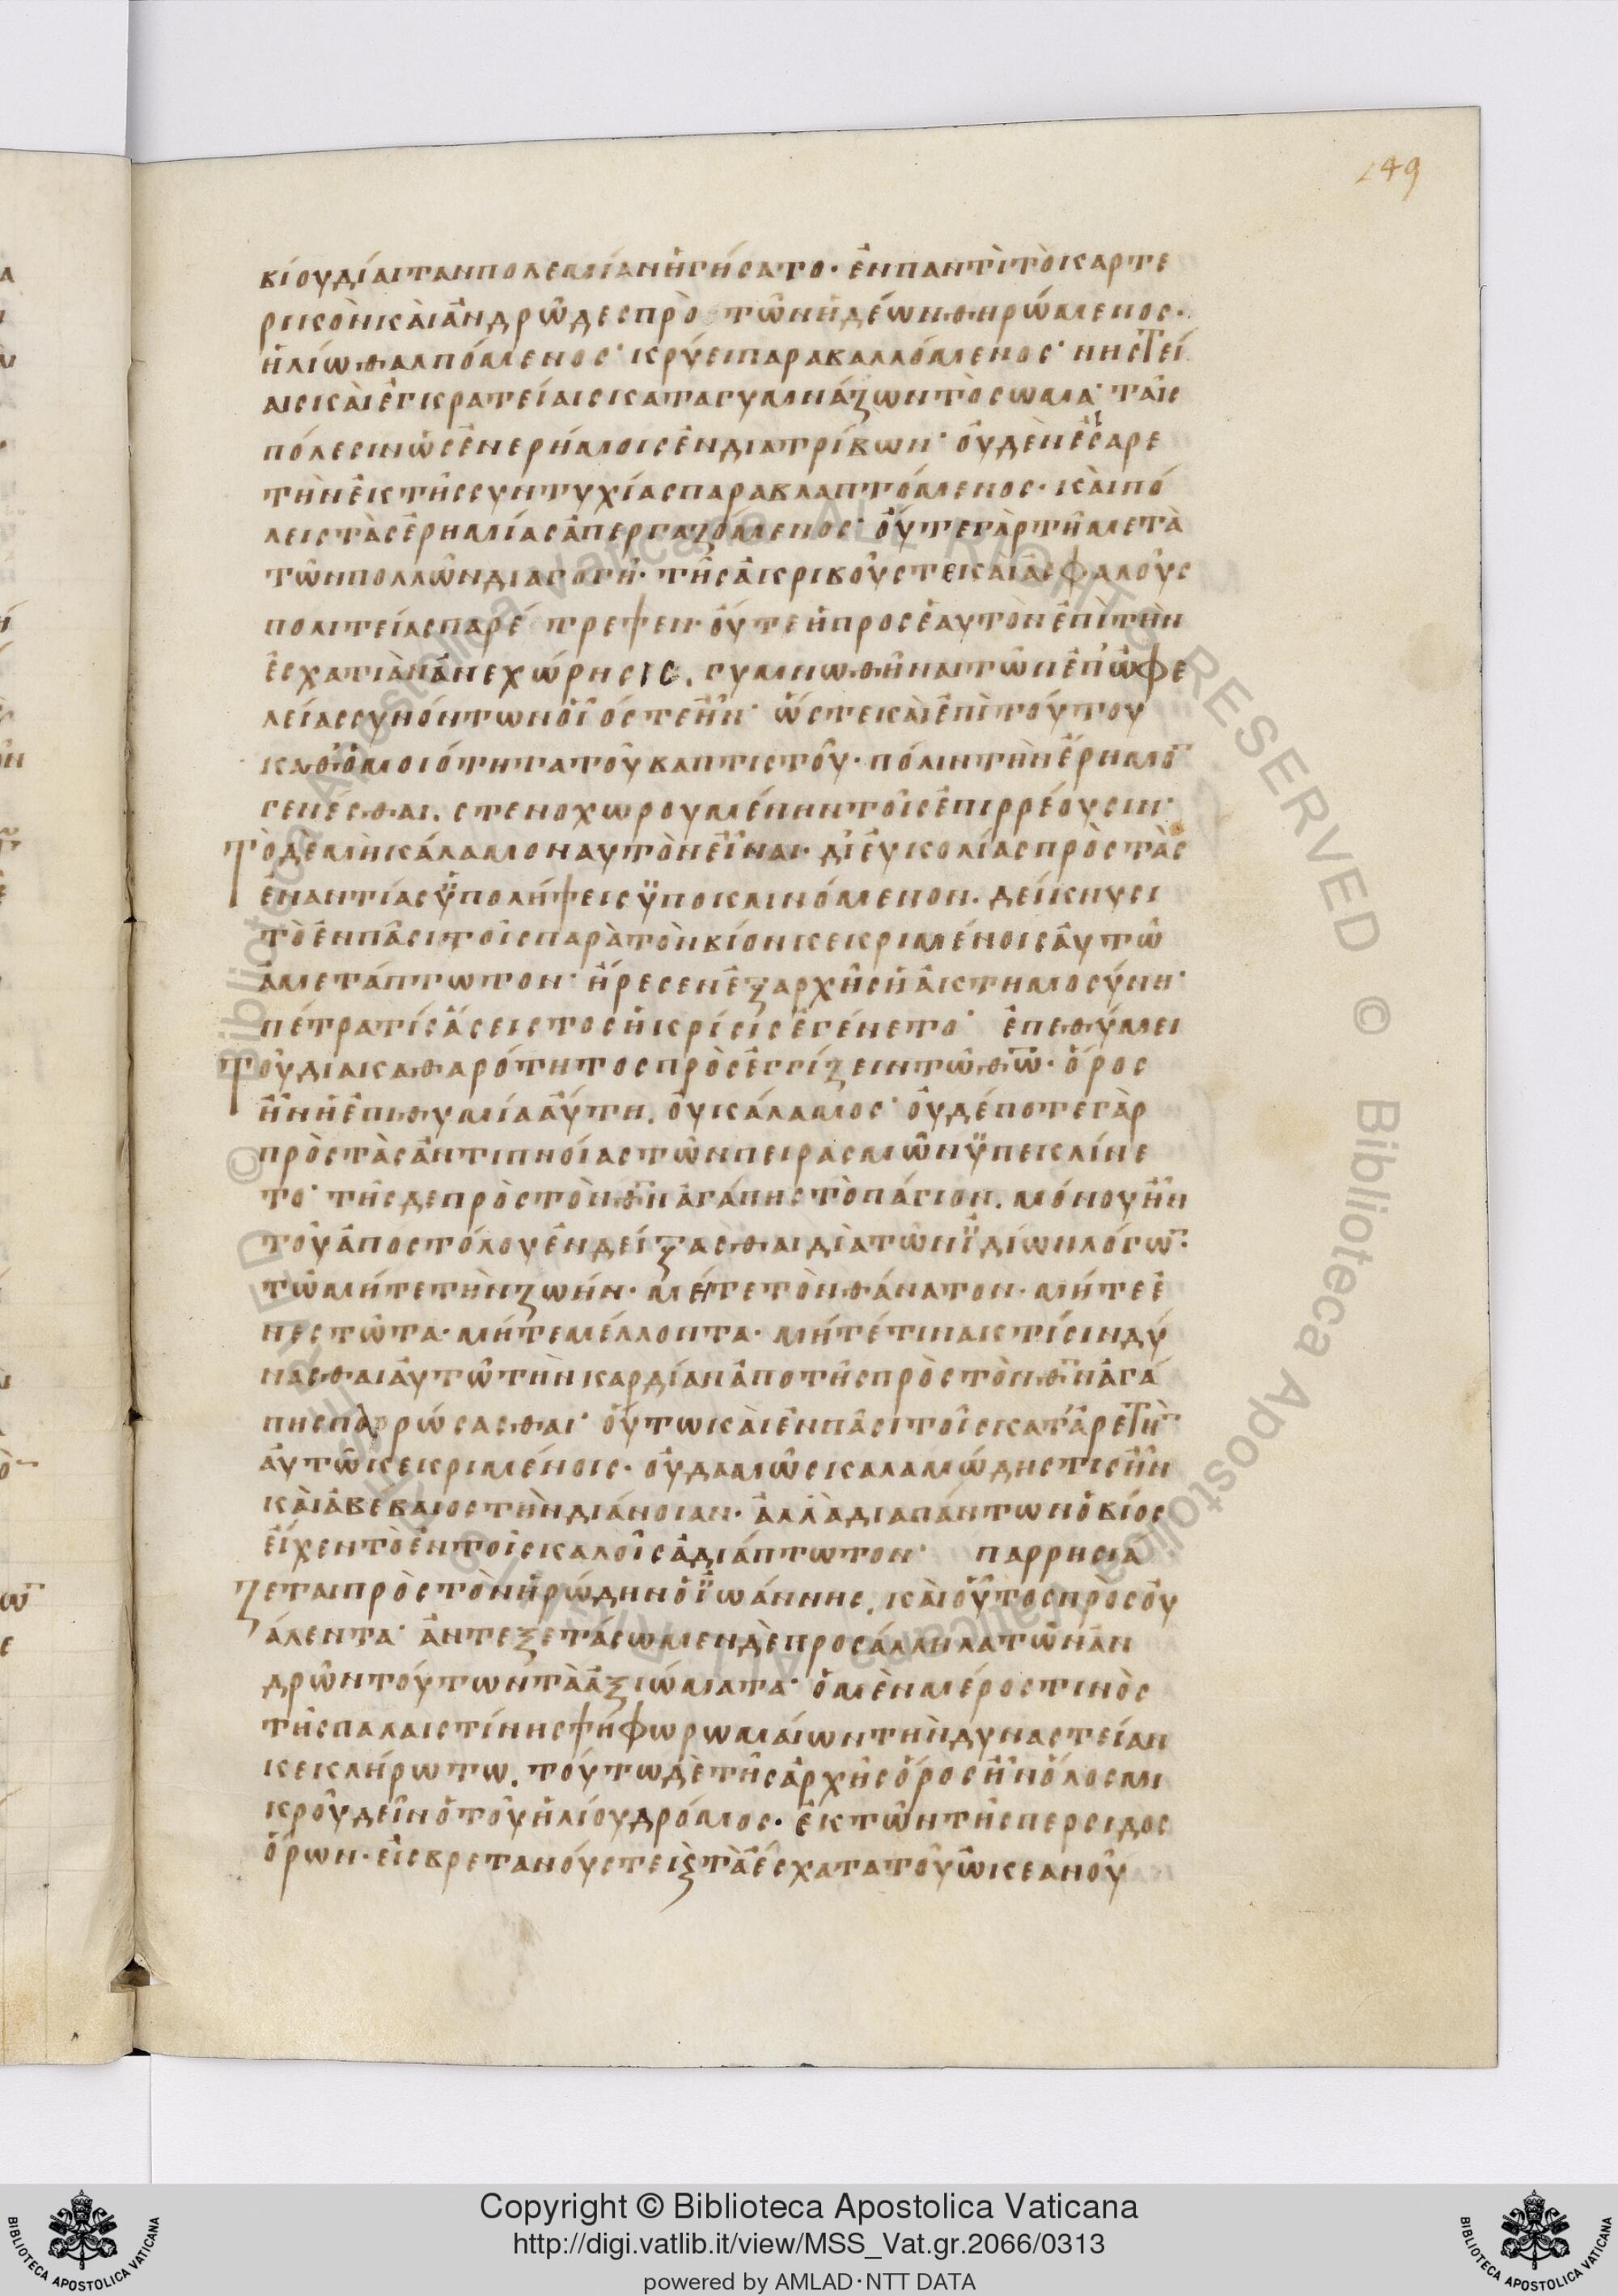 149
κίου δίαιταν πολεμίαν ἡγήσατο· ἐν παντὶ τὸ καρτε
ρικὸν καὶ ἀνδρῶδες πρὸ τῶν ἡδέων θηρώμενος·
ἡλίω θαλπόμενος· κρύει παραβαλλόμενος· νηστεί
αις καὶ ἐγκρατείαις καταγυμνάζων τὸ σωμα· ταῖς
πόλεσιν ὡς ἐν ερήμοις ἐνδιατρίβων· οὐδὲν ἐς αρε
τὴν ἐκ τῆς συντυχίας παραβλαπτόμενος· καὶ πό
λεις τὰς ἐρημίας ἀπεργαζόμενος· οὔτε γὰρ τῆ μετὰ
τῶν πολλῶν διαγογῆ· τῆς ἀκριβοῦς τε καὶ ἀσφαλοῦς
πολιτείας παρέ τρεψεν· οὔτε ἡ προς ἑαυτὸν ἐπὶ τὴν
ἐσχατιὰν ἀνεχώρησις. γυμνωθῆναι τῶν ἐπ' ὠφε
λείας συνόντων οἷός τε ἦν· ὥστε καὶ ἐπὶ τούτου
καθ' ὁμοιότητα τοῦ βαπτιστοῦ· πόλιν τὴν ἔρημο
γενέσθαι. στενοχωρουμένην τοῖς ἐπιρρέουσιν·
Τὸ δὲ μὴ κάλαμον αυτὸν εἶναι· δι' ἐυκολίας πρὸς τὰς
ἐναντίας ϋπολήψεις ϋποκλινόμενον. δείκνυσι
τὸ ἐν πᾶσι τοῖς παρὰ τὸν βίον κεκριμένοις ἀυτῶ
ἀμετάπτωτον· ἤρεσεν ἐξ αρχῆς ἡ ἀκτημοσύνη·
πέτρα τίς ἄσειστος ἡ κρίσίς ἐγένετο· ἐπεθύμει
Τοῦ δια καθαρότητος προσεγγίζειν τῶ θω· ὄρος
ἦν ἡ ἐπιθυμία ἄυτη. οὐ κάλαμος· οὐδέποτε γὰρ
πρὸς τὰς ἀντιπνοίας τῶν πειρασμῶν ϋπεκλίνε
το· τῆς δε πρὸς τὸν θν ἀγάπης τὸ πάγιον. μόνου ἦν
τοῦ ἀποστόλου ἐνδείξασθαι διὰ τῶν ϊδίων λόγω·
τῶ μήτε τὴν ζωήν· μήτε τὸν θάνατον· μήτε ἐ
νεστῶτα· μήτε μέλλοντα· μήτέ τινα κτίσιν δύ
νασθαι ἀυτῶ τὴν καρδίαν ἀπο τῆς πρὸς τὸν θν ἀγά
πης πορρώσασθαι· οὕτω καὶ ἐν πᾶσι τοῖς κατ' ἀρετὴ
ἀυτῶ κεκριμένοις· οὐδαμῶς καλαμώδης τις ἦν
καὶ ἀβέβαιος τὴν διάνοιαν· ἀλλὰ δια πάντων ὁ βίος
εἶχεν τὸ ἐν τοῖς καλοῖς ἀδιάπτωτον· παρρησια
Ζεται πρὸς τὸν ἡρώδην ὁ ϊωάννης. καὶ οὗτος πρὸς οὐ
άλεντα· ἀντεξετάσωμεν δὲ προς άλληλα τῶν ἀν
δρῶν τούτων τὰ ἀξιώματα· ὁ μὲν μέρος τινὸς
τῆς παλαιστίνης ψήφω ρωμαίων τὴν δυναστείαν
κεκλήρωτω. τούτω δὲ τῆς ἀρχῆς ὅρος ἦν ὅλος μι
κροῦ δεῖν ὁ τοῦ ἡλίου δρόμος· ἐκ τῶν τῆς περσιδος
ὅρων· εἰς βρετανούς τε ϗ τὰ ἔσχατα τοῦ ὠκεανοῦ
Copyright © Biblioteca Apostolica Vaticana
http://digi.vatlib.it/view/MSS_Vat.gr.2066/0313
powered by AMLAD·NTT DATA